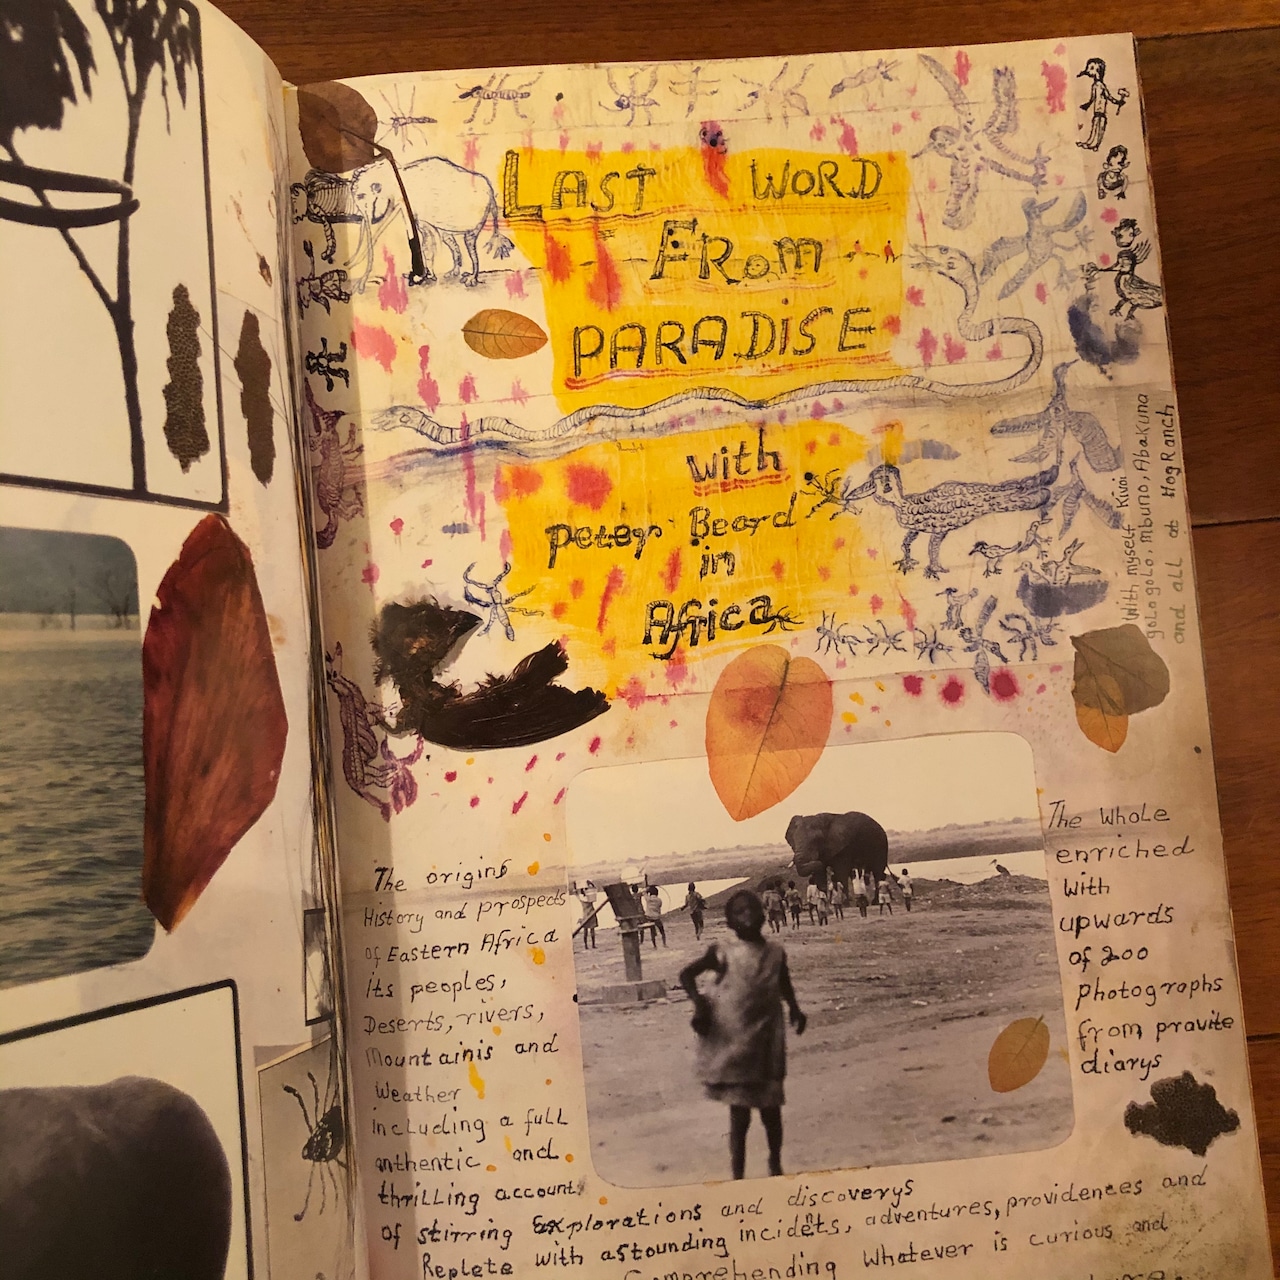 LAST WORD
FROM
PARADISE
with
peter Beard
in
Africa
With myself Kivoi
gologolo, mbuno, Abakuna
and all at HogRanch
The origins
History and prospects
of Eastern Africa
its peoples,
Deserts, rivers,
Mountainis and
Weather
including a full
anthentic and
thrilling account
of stirring Explorations and discoverys
Replete with astounding incidents, adventures, providences and
Comprehending Whatever is curious and
The Whole
enriched
With
upwards
of 200
photographs
from pravite
diarys